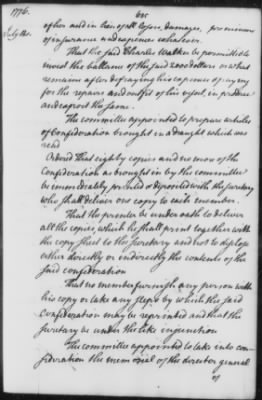 1776.
625
July 12.
of her and in lieu of all losses, damages, pr
of insurance and expences whatever.
That the said Charles Walker be permitted to
invest the ballance of the said 2000 dollars or what
remains after defraying his expences of
for the repairs and outfit of his vessel, in produce
and export the same.
The committee appointed to prepare articles
of Confederation brought in a draught which was
read
Ordered That eighty copies and no more of the
Confederation as brought in by the committee
be immediately printed & deposited with the secretary
who shall deliver one copy to each member.
That the printer be under oath to deliver
all the copies, which he shall print together with
the copy sheet to the secretary and not to disclose
either directly or indirectly the contents of the
said confederation
That no member furnish any person with
his copy or take any steps by which the said
Confederation may be reprinted and that the
secretary be under the like injunction
The committee appointed to take into con-
sideration the memorial of the director general
of